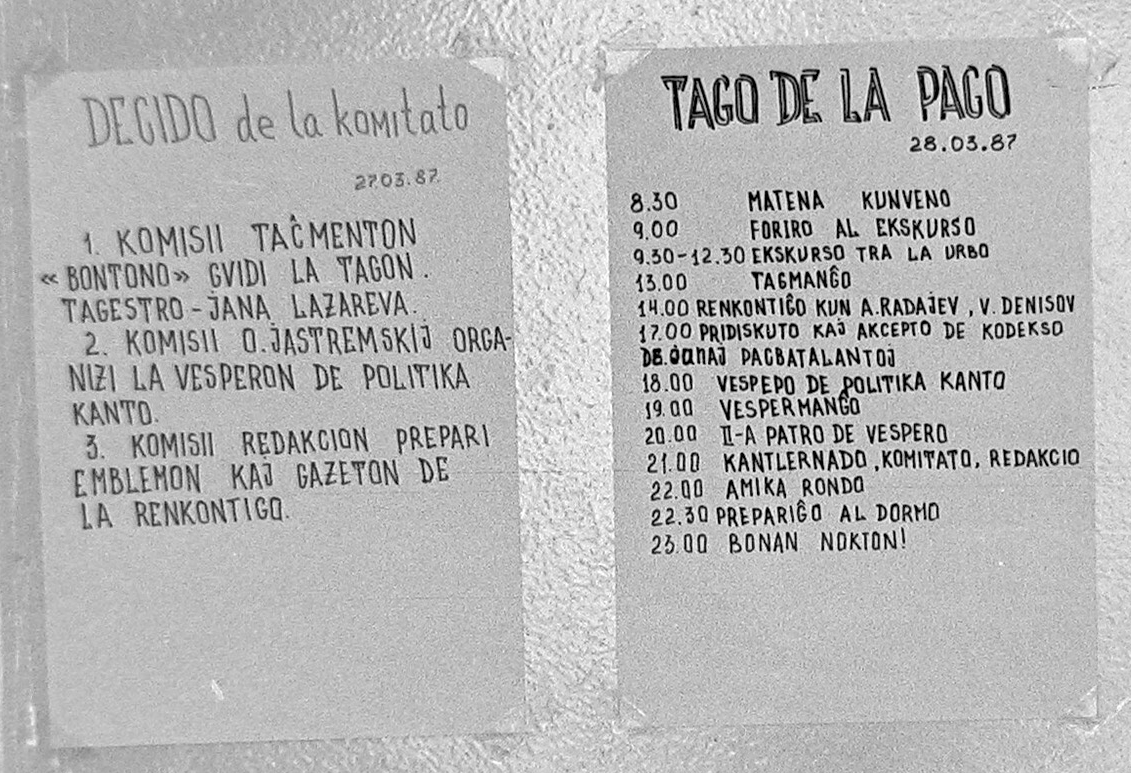 DECIDO de la komitato
27.03.87.
1. KOMISII TAĈMENTON
«BONTONO» GVIDI LA TAGON.
TAGESTRO - JANA LAZAREVA.
2. KOMISII O.JASTREMSKIJ ORGA-
NIZI LA VESPERON DE POLITIKA
KANTO.
3. KOMISII REDAKCION PREPARI
EMBLEMON KAJ GAZETON DE
LA RENKONTIGO.
TAGO DE LA PACO
28.03.87
8.30 MATENA KUNVENO
9.00 FORIRO AL EKSKURSO
9.30-12.30 EKSKURSO TRA LA URBO
13.00 TAGMANĜO
14.00 RENKONTIĜO KUN A.RADAJEV, V. DENISOV
17.00 PRIDISKUTO KAJ AKCEPTO DE KODEKSO
DE JUNAJ PACBATALANTOJ
18.00 VESPEPO DE POLITIKA KANTO
19.00 VESPERMANĜO
20.00 II-A PATRO DE VESPERO
21.00 KANTLERNADO, KOMITATO, REDAKCIO
22.00 AMIKA RONDO
22.30 PREPARIĜO AL DORMO
23.00 BONAN NOKTON!